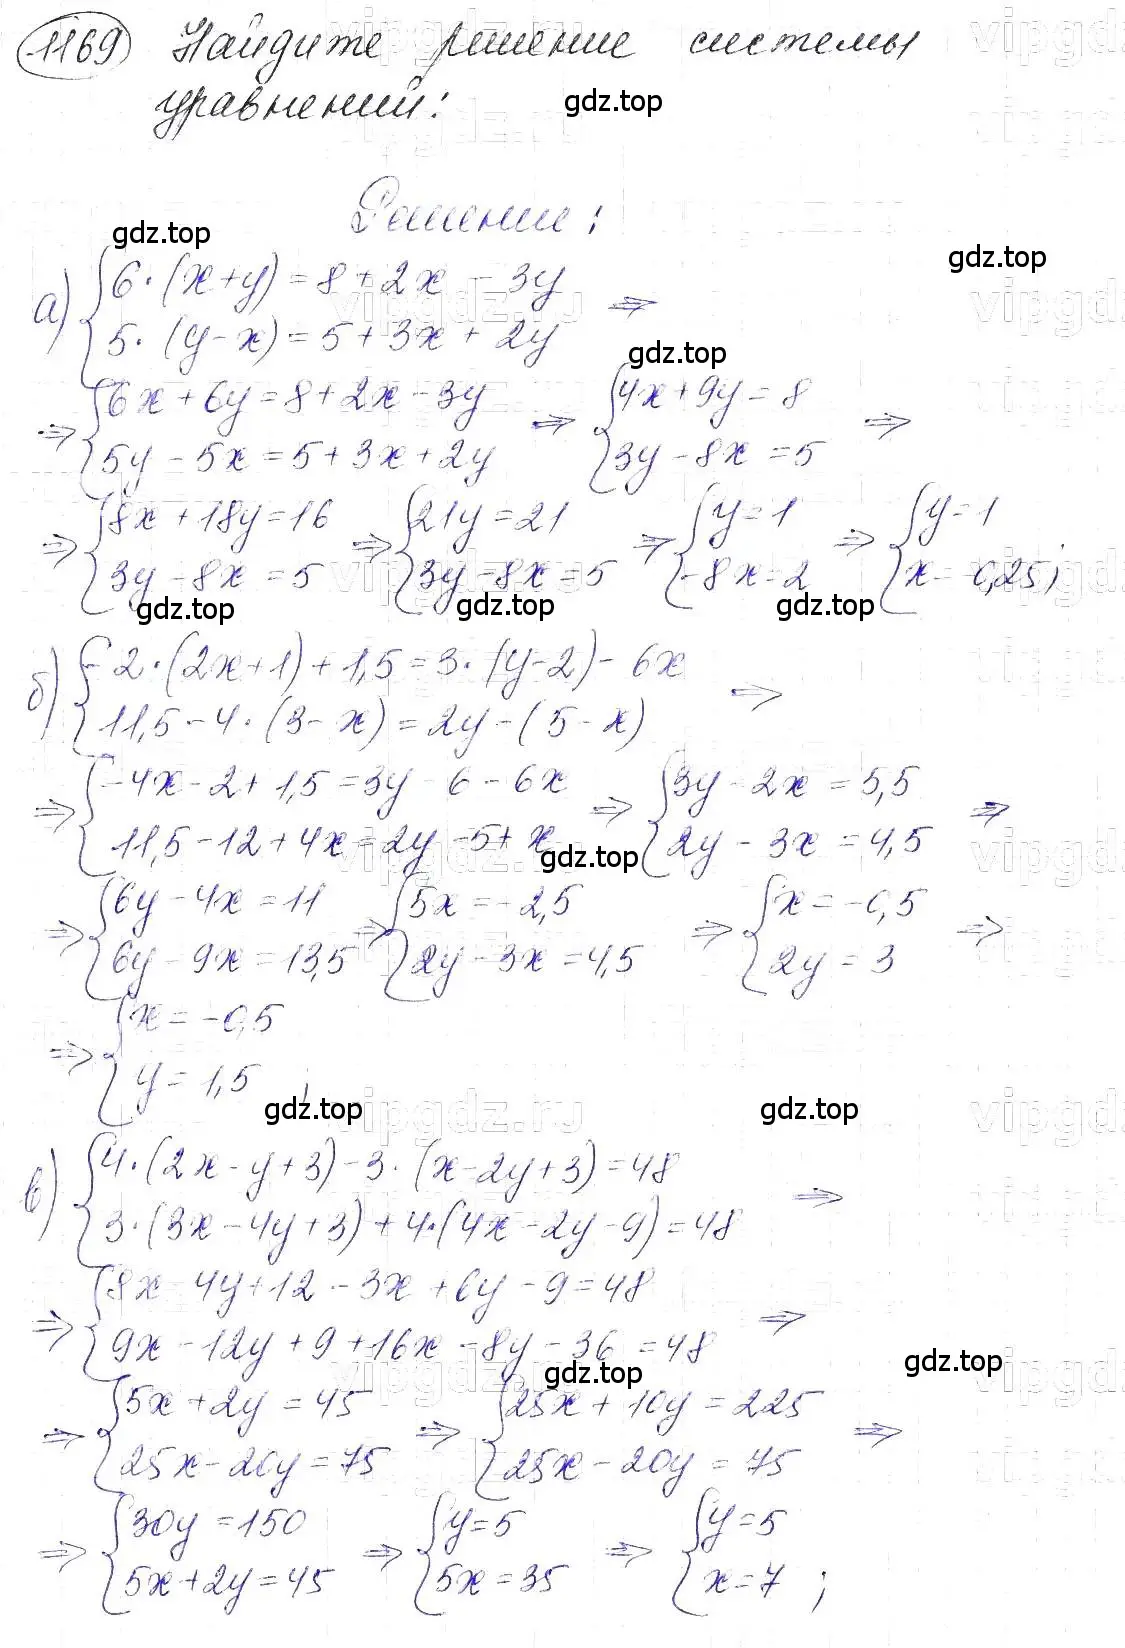 1169 Найдите решение системы
уравнений:
gdz.top
Решение:
gdz.top
а) { 6·(x+y)=8+2x-3y
5·(y-x)=5+3x+2y ⇒
gdz.top
gdz.top
⇒ { 6x+6y=8+2x-3y
5y-5x=5+3x+2y ⇒ { 4x+9y=8
3y-8x=5 ⇒
⇒ { 8x+18y=16
3y-8x=5 ⇒ { 21y=21
3y-8x=5 ⇒ { y=1
-8x=2 ⇒ { y=1
x=-0,25;
gdz.top gdz.top gdz.top
б) { -2·(2x+1)+1,5=3·(y-2)-6x
11,5-4·(3-x)=2y-(5-x) ⇒
⇒ { -4x-2+1,5=3y-6-6x
11,5-12+4x=2y-5+x ⇒ { 3y-2x=5,5
2y-3x=4,5 ⇒
gdz.top
⇒ { 6y-4x=11
6y-9x=13,5 ⇒ { 5x=-2,5
2y-3x=4,5 ⇒ { x=-0,5
2y=3 ⇒
⇒ { x=-0,5
y=1,5 ;
gdz.top gdz.top
в) { 4·(2x-y+3)-3·(x-2y+3)=48
3·(3x-4y+3)+4·(4x-2y-9)=48 ⇒
⇒ { 8x-4y+12-3x+6y-9=48
9x-12y+9+16x-8y-36=48 ⇒
gdz.top gdz.top
⇒ { 5x+2y=45
25x-20y=75 ⇒ { 25x+10y=225
25x-20y=75 ⇒
⇒ { 30y=150
5x+2y=45 ⇒ { y=5
5x=35 ⇒ { y=5
x=7 ;
vipgdz.ru